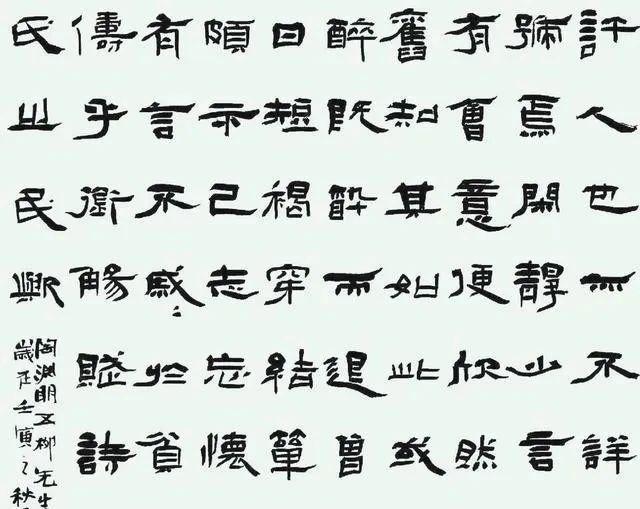 許人也亦不詳
號焉閑靜少言
有會意便欣然
舊知其如此或
醉既醉而退曾
日短褐穿結簞
頗示己志忘懷
有言不戚〻於貧
儔乎銜觴賦詩
氏之民歟
陶淵明五柳先生
歲在壬寅之秋